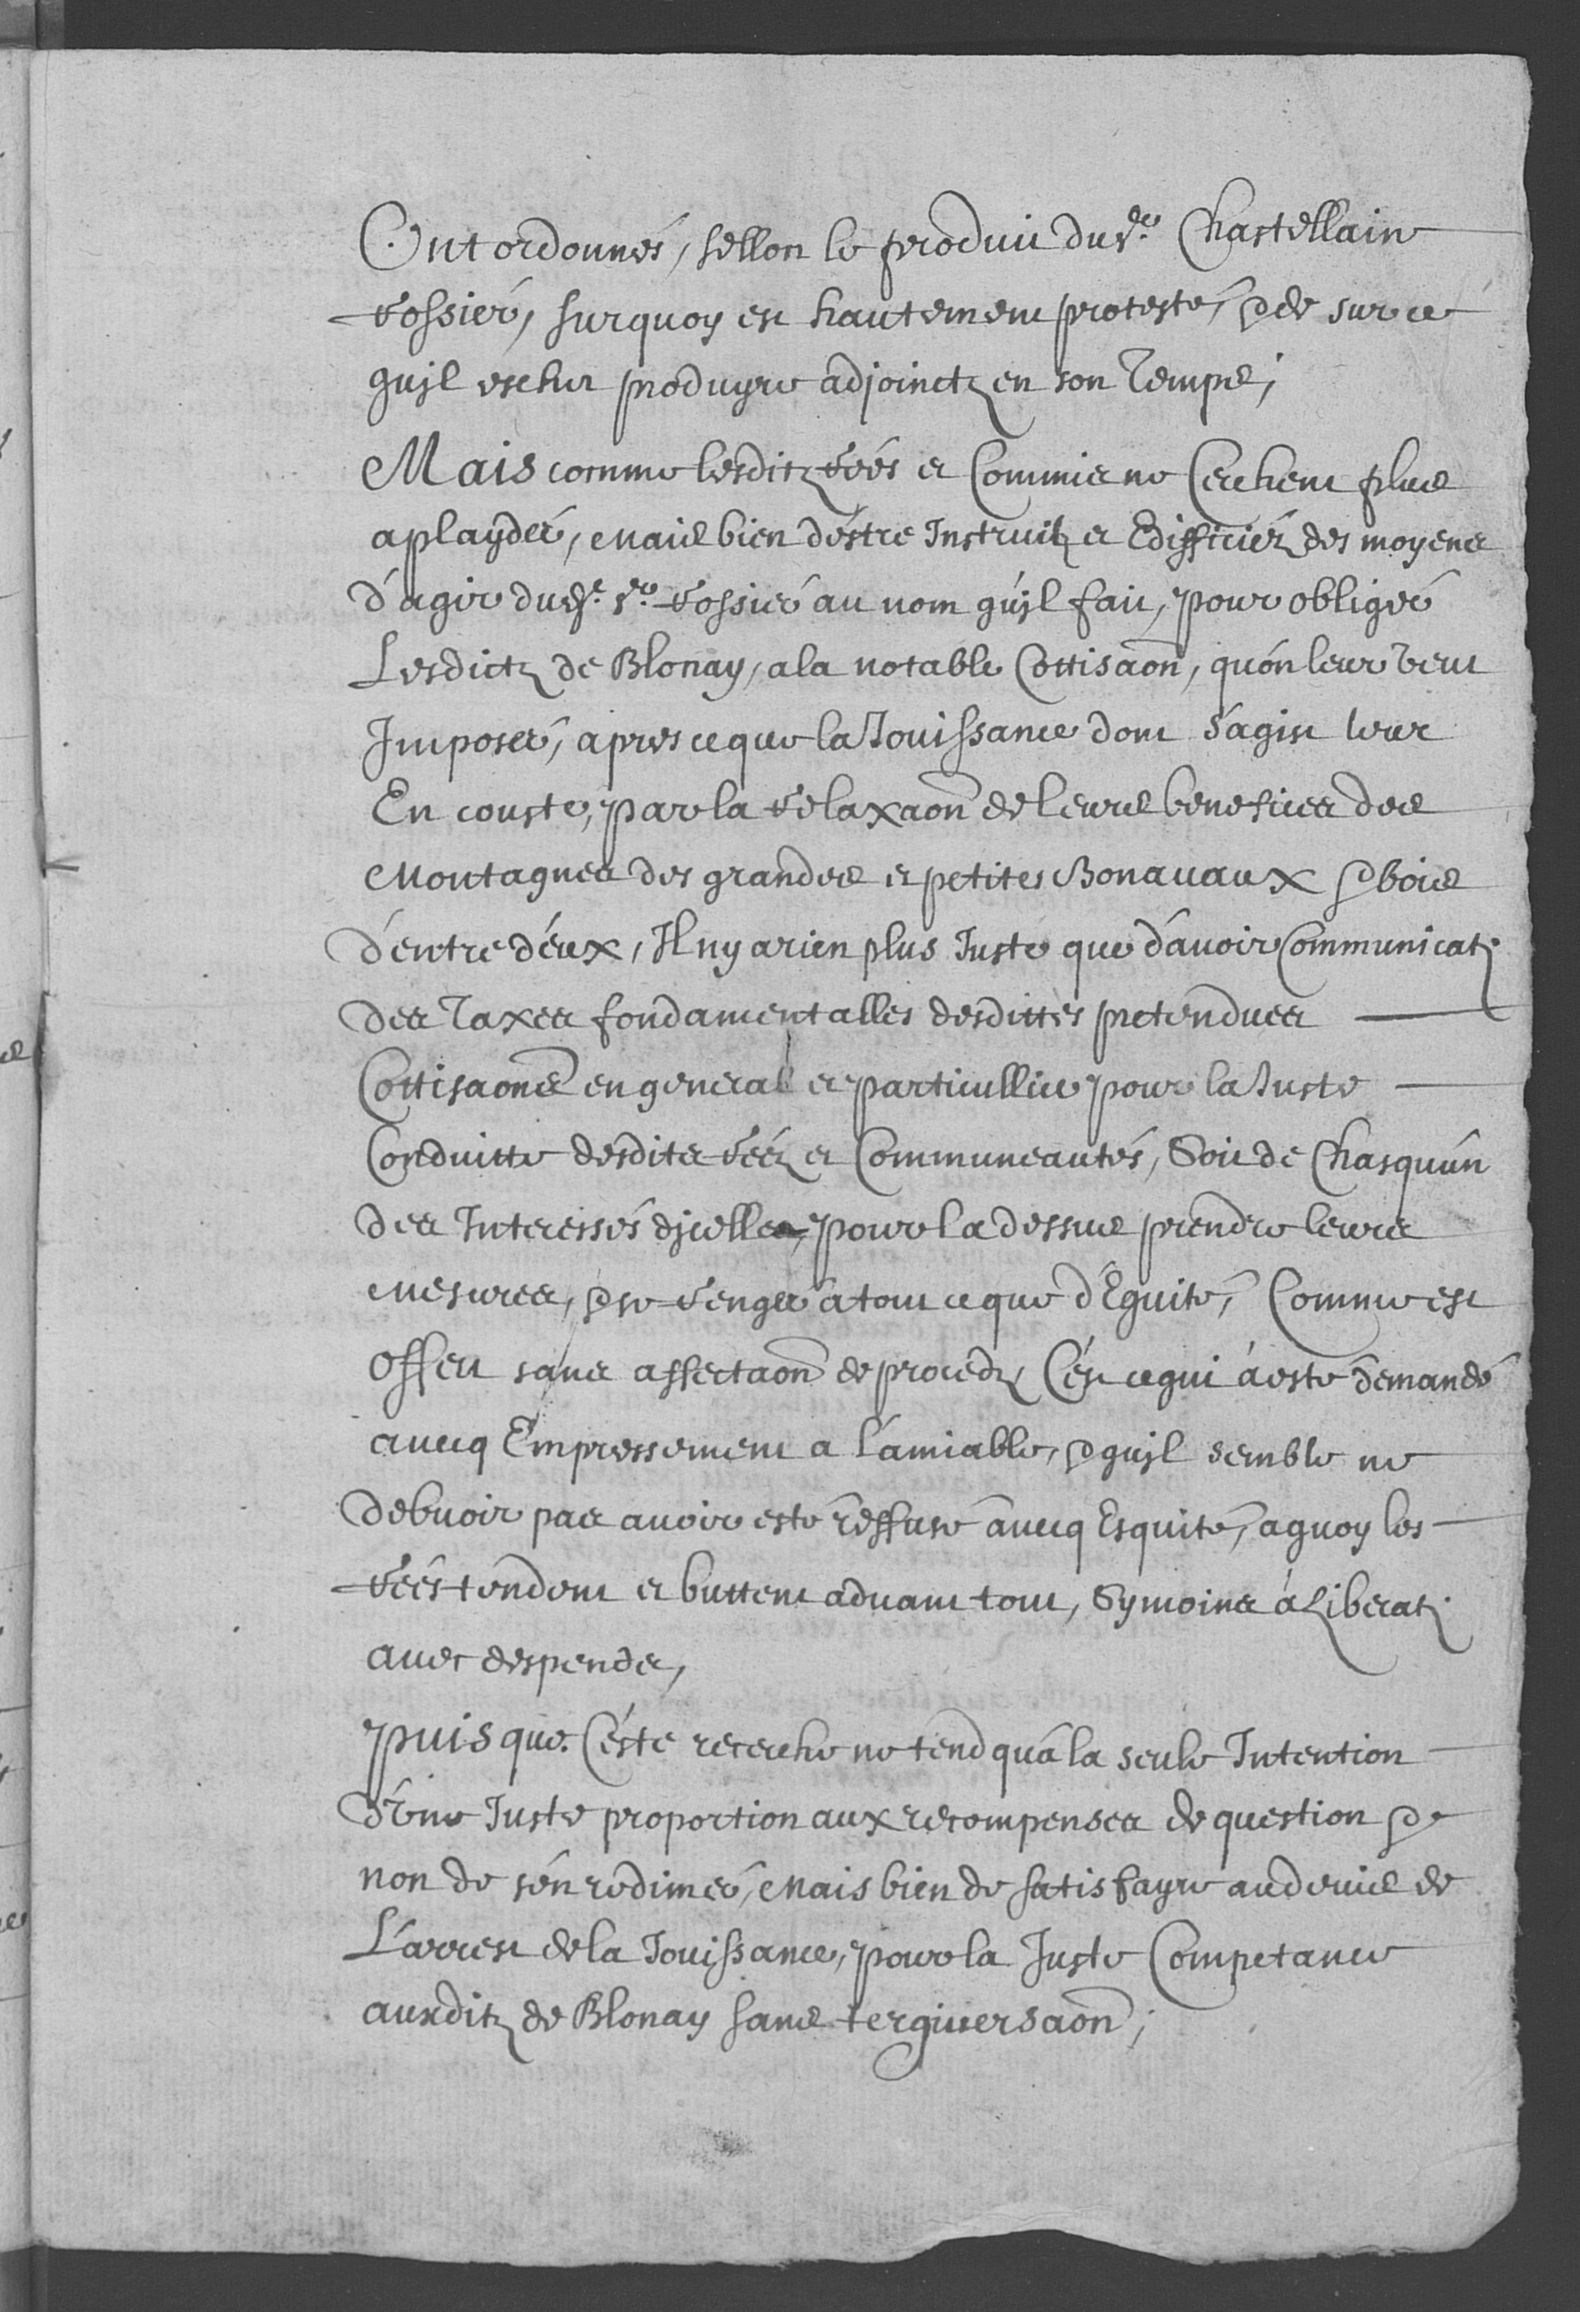 Ont ordonnés, sellon le produit du Sr. Chastellain
Rossier, surquoy est hautement protesté, & de sur ce
quil eschet produyre adjoinctz en son Temps;
Mais comme lesditz Rées et Commis ne Cerchent plus
a playder, mais bien d'éstre Instruitz et Edifficiéz des moyens
d'agir dudt. Sr. Rossier au nom qu'jl fait, pour obliger
Lesdictz de Blonay, a la notable Cottisaon, qu'ón leur veut
Imposer, apres ce que la Jouissance dont s'agist leur
En couste, par la Relaxaon de leurs benefices des
Montagnes des grandes et petites Bonauaux & bois
d'entre d'eux, Il ny a rien plus Juste que d'auoir Communicatz
des Taxes fondamentalles desdittes pretendues
Cottisaons en general et particullier pour la Juste
Conduitte desdits Réez et Communeautés, Soit de Chasqu'ún
des Interessés djcelles, pour la dessus prendre leurs
mesures, & se Renger à tout ce que d'Equité, Comme est
Offert sans affectaon de procedz C'ést ce qui à esté demandé
auecq Empressement a l'ámiable, & qujl semble ne
debuoir pas auoir esté reffusé auecq Esquité, a quoy les
Réés tendent et buttent aduant tout, Sy moins à Liberatz
auec despends,
Puis que Céste recerche ne tend qu'á la seule Intention
d'vne Juste proportion aux recompenses de question &
non de s'én redimer, mais bien de satisfayre au deuis de
L'arrest de la Jouissance, pour la Juste Competance
auxditz de Blonay sans tergiuersaon;